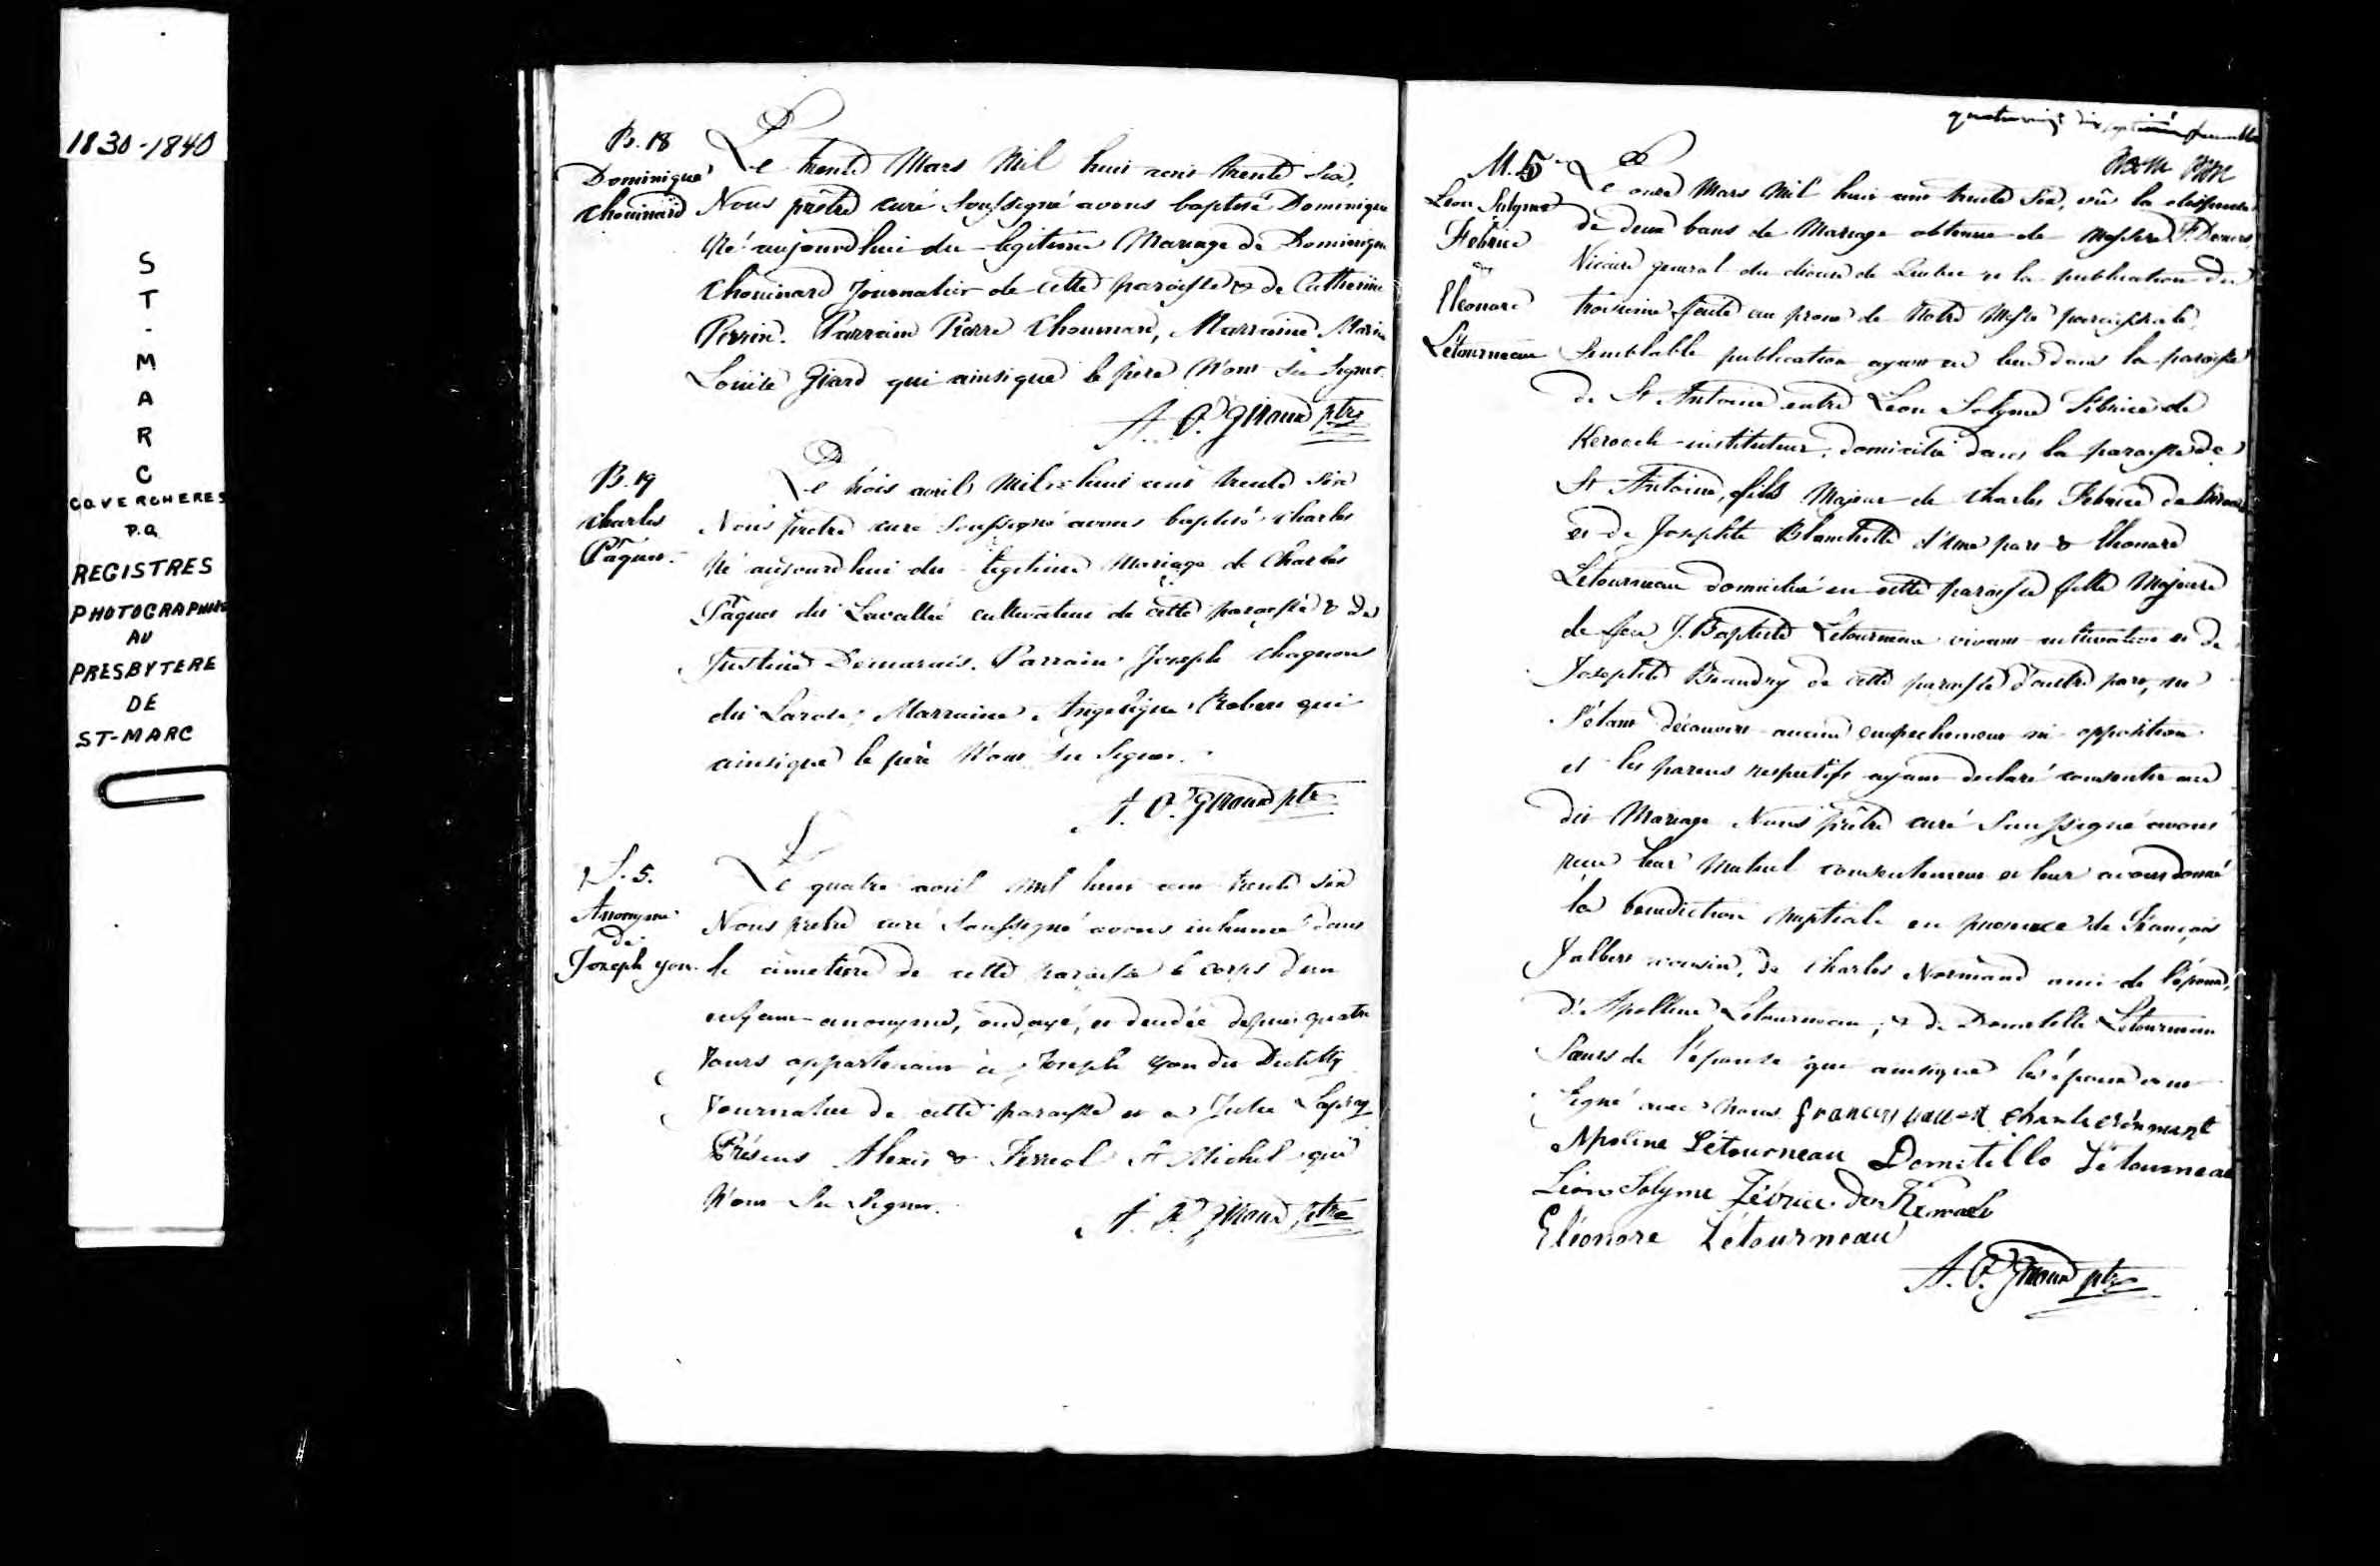 1830-1840
S
T
-
M
A
R
C
COVERCHERES
P.Q.
REGISTRES
PHOTOGRAPHIES
AU
PRESBYTERE
DE
ST-MARC
B. 18
Dominique
Chouinard
Le trente Mars Mil huit cent trente six,
Nous prêtre curé Soussigné avons baptisé Dominique
Né aujourd'hui du legitime Mariage de Dominique
Chouinard Journalier de cette paroisse & de Catherine
Perrin. Parrain Pierre Chouinard, Marraine Marie
Louise Giard qui ainsique le père N'ont su signer.
A. O. Giroux ptre
B. 19
Charles
Pâques
Le trois avril Mil huit cent trente six
Nous prêtre curé Soussigné avons baptisé Charles
Né aujourd'hui du legitime Mariage de Charles
Pâques dit Lavallée cultivateur de cette paroisse & de
Justine Demarais. Parrain Joseph Chagnon
dit Larose, Marraine Angelique Robert qui
ainsique le père N'ont su signer.
A. O. Giroux ptre
S. 5.
Anonyme
de
Joseph Yon
Le quatre avril mil huit cent trente six
Nous prêtre curé Soussigné avons inhumé dans
le cimetiere de cette paroisse le corps d'un
enfant anonyme, ondoyé, et decédé depuis quatre
Jours appartenant à Joseph Yon dit
Journalier de cette paroisse et a Julie
Présens Alexis & Ferreol St Michel qui
N'ont su signer.
A. O. Giroux ptre
feuillet
M. 5
Leon Solyme
Febrice
&
Eleonore
Létourneau
Le onze Mars Mil huit cent trente six, vû la dispense
de deux bans de Mariage obtenue de Messire F. Demers
Vicaire general du diocese de Quebec et la publication du
troisieme faite au prone de Notre Messe paroissiale,
Semblable publication ayant eu lieu dans la paroisse
de St Antoine entre Léon Solyme Febrice de
Keroack instituteur, domicilié dans la paroisse de
St Antoine, fils Majeur de Charles Febrice de
et de Josephte Blanchette d'une part & Eléonore
Létourneau domiciliée en cette paroisse fille Majeure
de feu J. Baptiste Létourneau vivant cultivateur et de
Josephte Beaudry de cette paroisse d'autre part, ne
s'étant découvert aucun empechement ni opposition
et les parens respectifs ayant declaré consentir au
dit Mariage Nous prêtre curé Soussigné avons
reçu leur Mutuel consentement et leur avons donné
la benediction nuptiale en presence de François
Jalbert cousin, de Charles Normand ami de l'époux,
d'Apolline Létourneau, & de Domitille Létourneau
Sœurs de l'épouse qui ainsique les époux ont
signé avec Nous. francois
Apoline Létourneau Domitille Létourneau
Léon Solyme Févrice de Kéroack
Eléonore Létourneau
A. O. Giroux ptre